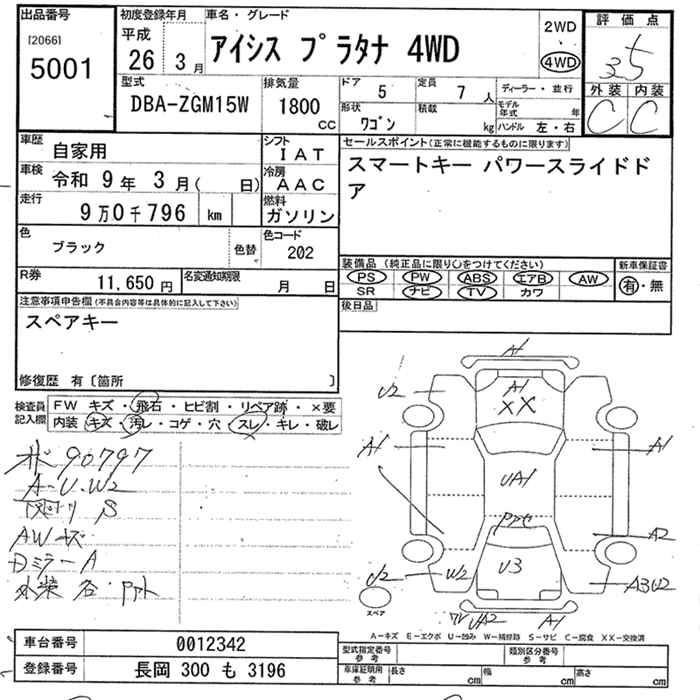 出品番号
[2066]
5001
初度登録年月
平成
26年 3月
車名・グレード
アイシス プラタナ 4WD
2WD
・
4WD
評価点
3.5
外装 内装
C C
型式
DBA-ZGM15W
排気量
1800
cc
ドア
5
定員
7 人
形状
ワゴン
積載
kg
ディーラー・並行
モデル年式 年
ハンドル 左・右
車歴
自家用
車検
令和 9年 3月( 日)
走行
9万0千796 km
シフト
IAT
冷房
AAC
燃料
ガソリン
色
ブラック
色替
色コード
202
R券
11,650 円
名変通知期限
月 日
セールスポイント(正常に機能するものに限ります)
スマートキー パワースライドド
ア
装備品(純正品に限り○をつけてください)
PS PW ABS エアB AW
SR ナビ TV カワ
新車保証書
有・無
後日品
注意事項申告欄(不具合内容等は具体的に記入して下さい)
スペアキー
修復歴 有〔箇所 〕
検査員
記入欄
FW キズ・飛石・ヒビ割・リペア跡・×要
内装・キズ・汚レ・コゲ・穴・スレ・キレ・破レ
90797
A-U-W2
S
AWキズ
DミラーA
A1
U2
A1
XX
A1
A1
UA1
A2
U3
U2
W2
A3U2
UA2
A1
スペア
A-キズ E-エクボ U-凹み W-補修跡 S-サビ C-腐食 XX-交換済
車台番号
0012342
登録番号
長岡 300 も 3196
型式指定番号
参考
類別区分番号
参考
車庫証明用
参考
長さ cm
幅 cm
高さ cm